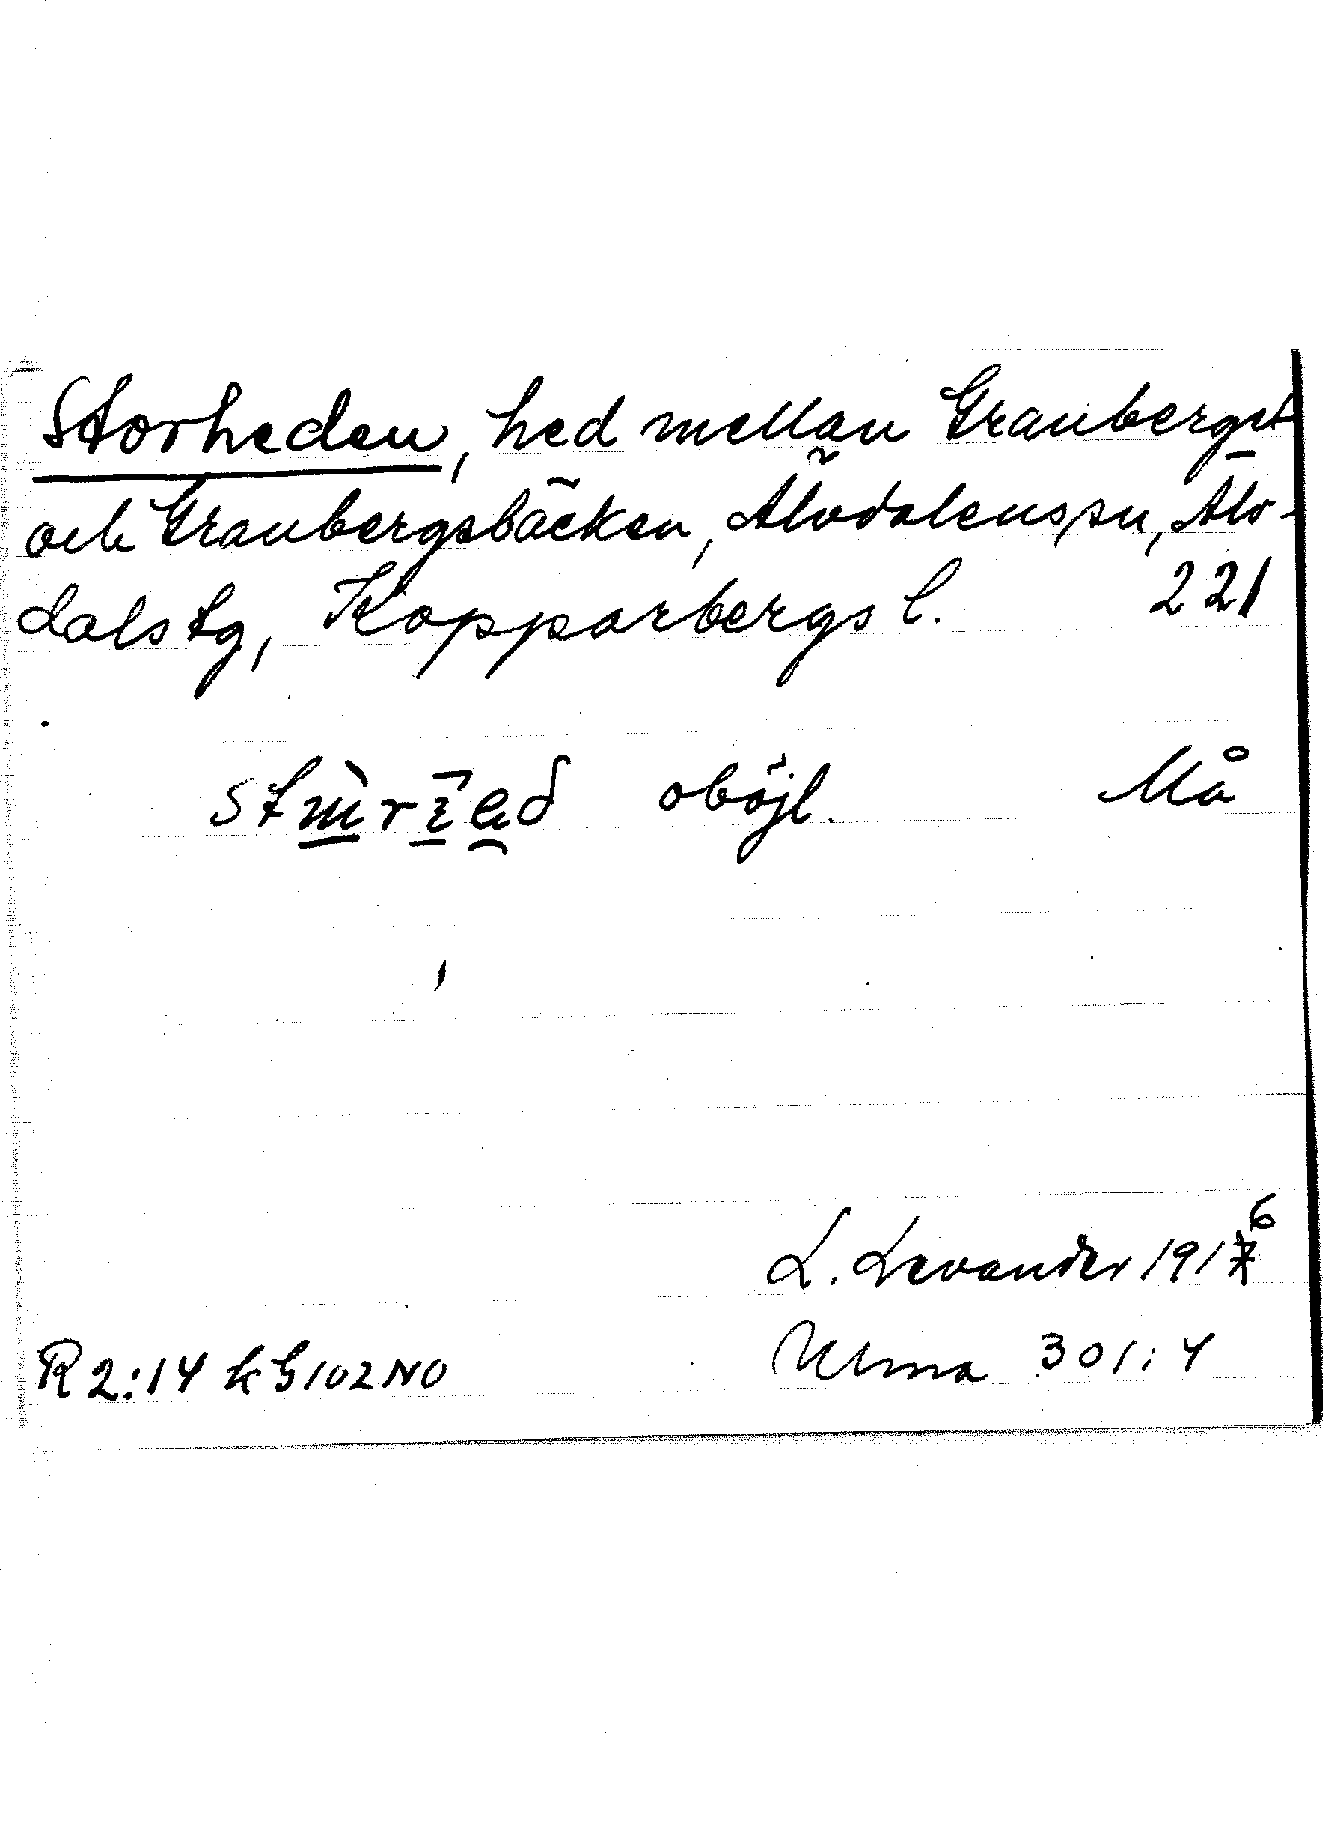 Storheden, hed mellan Granberget
och Granbergsbäcken, Älvdalens sn, Älv-
dals tg, Kopparbergs l. 221
oböjl. Må
L. Levander 1916
R 2:14 k G 102 NO Ulma 301:4